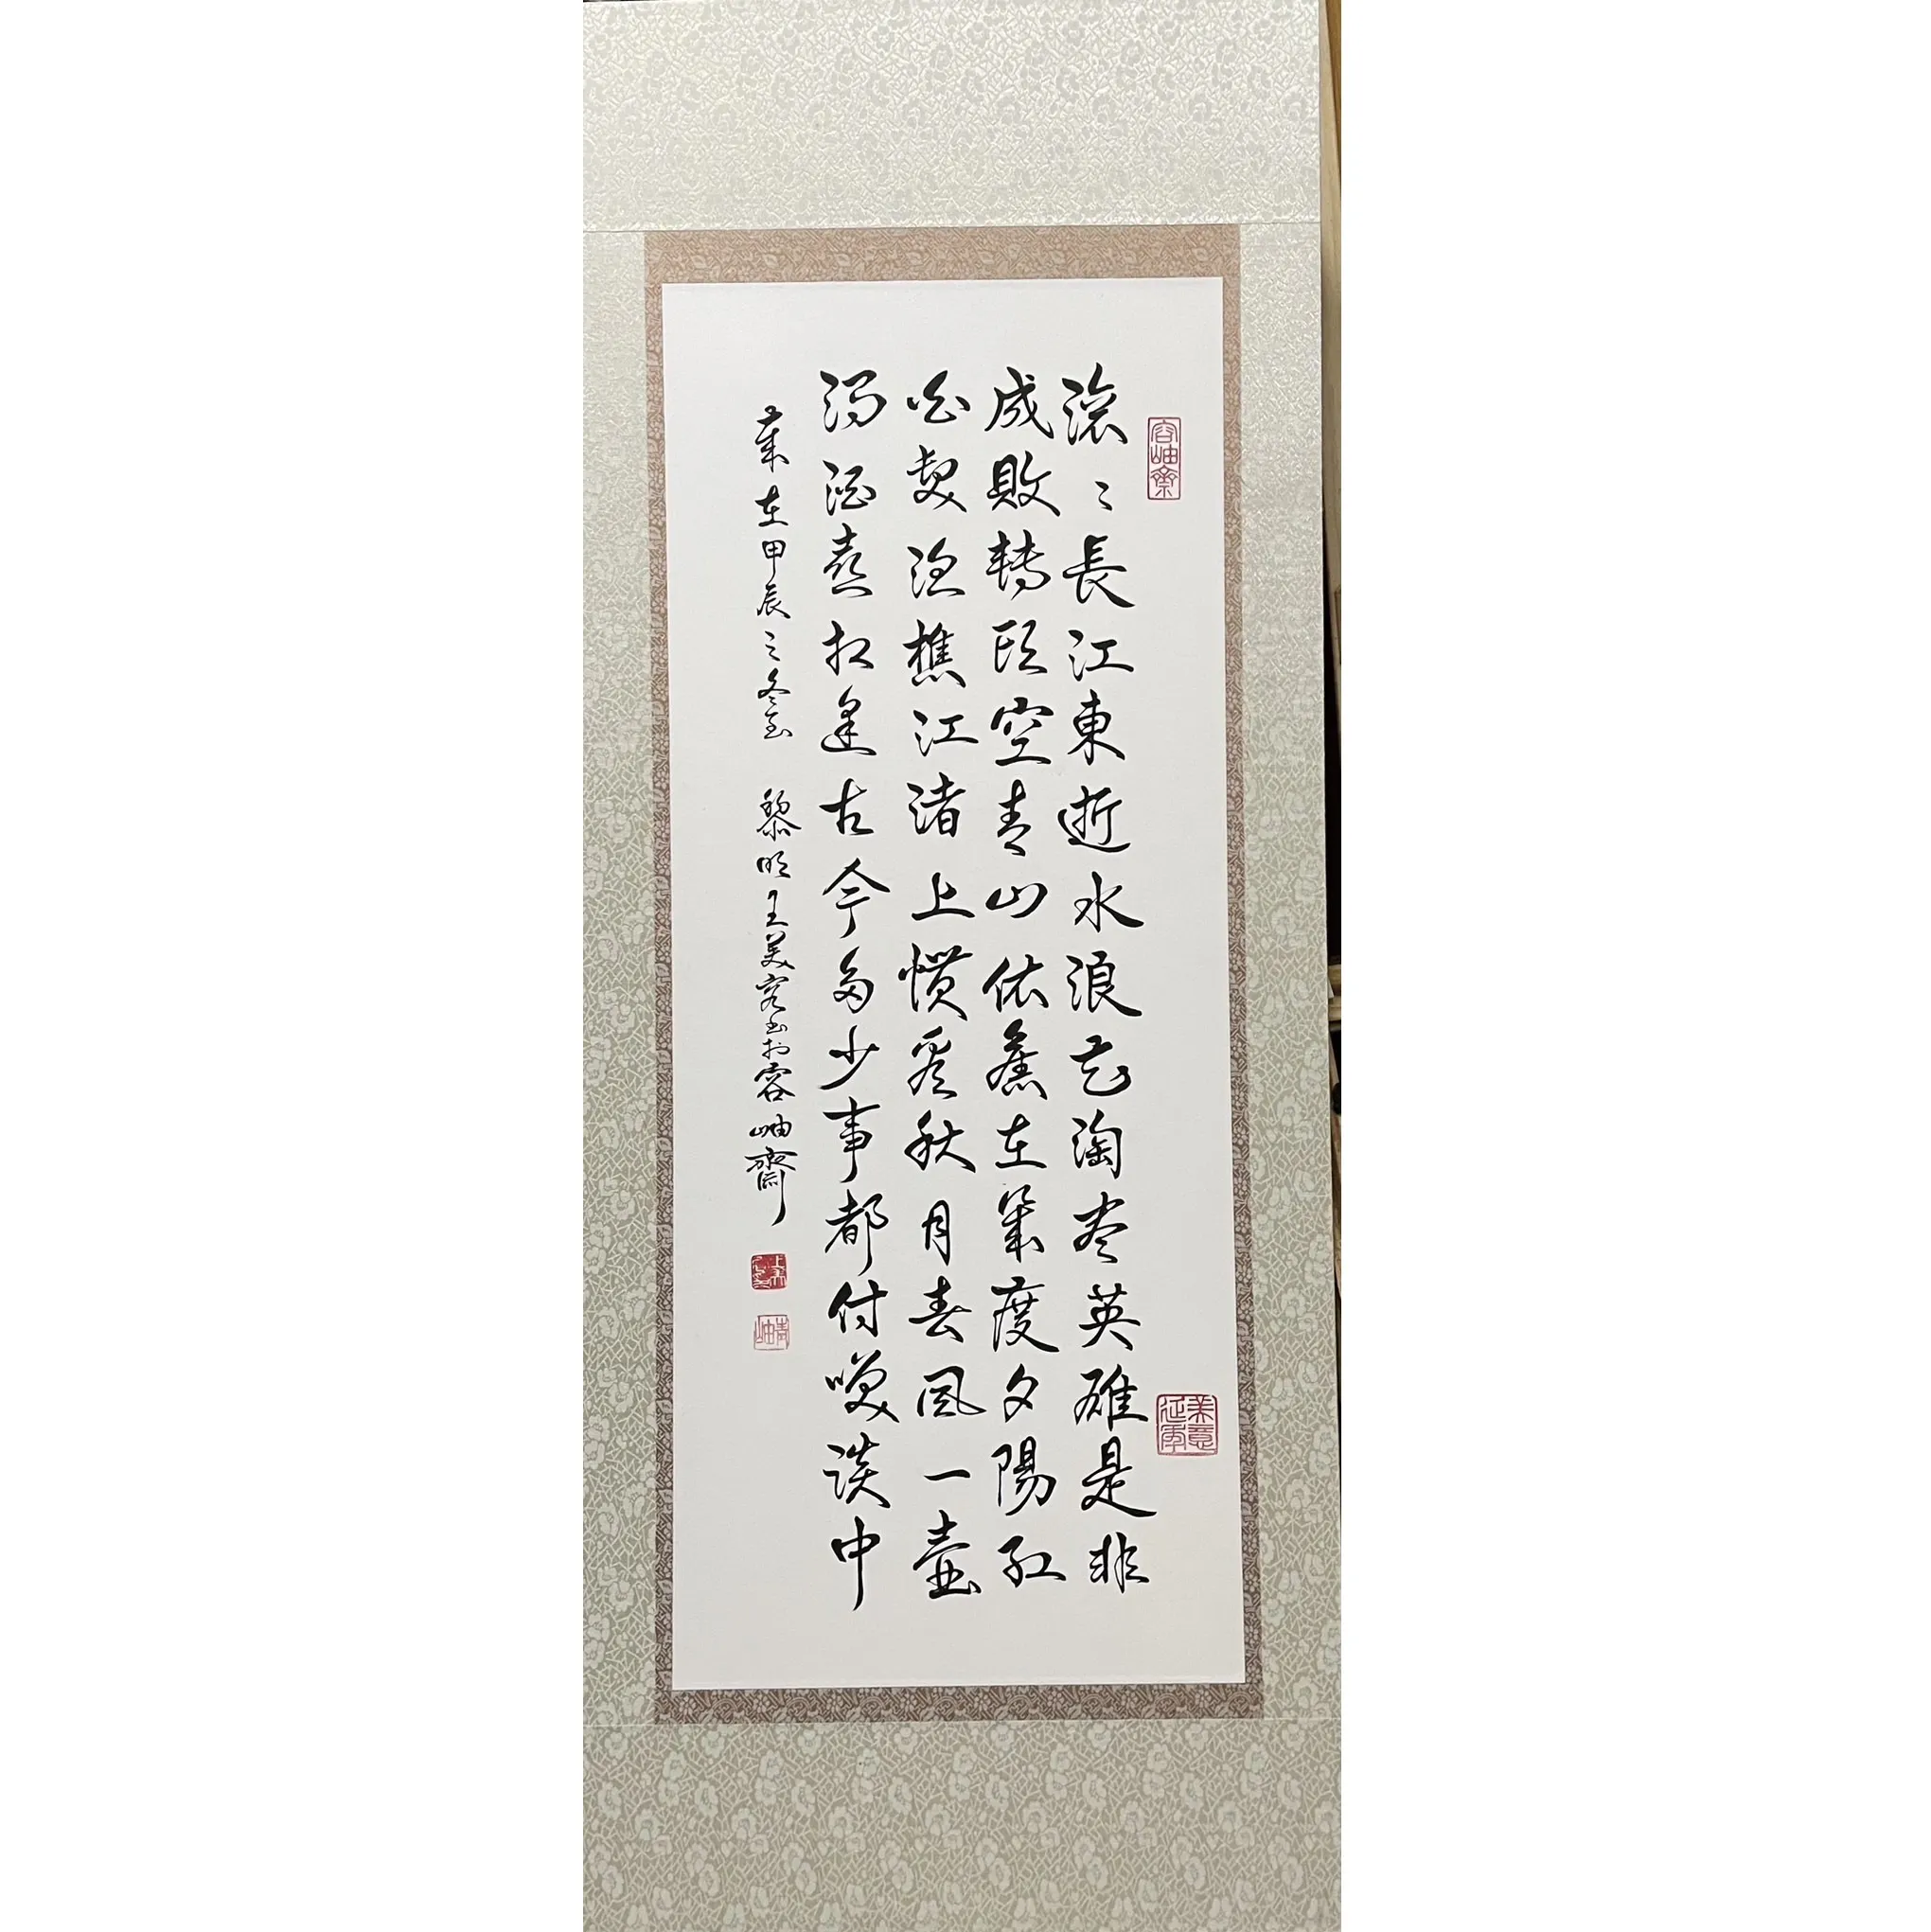 滾〻長江東逝水浪花淘盡英雄是非
成敗轉頭空青山依舊在幾度夕陽紅
白髮漁樵江渚上慣看秋月春風一壺
濁酒喜相逢古今多少事都付笑談中
歲在甲辰之冬至 黎明王美容書於容岫齋
容岫齋
美意延年